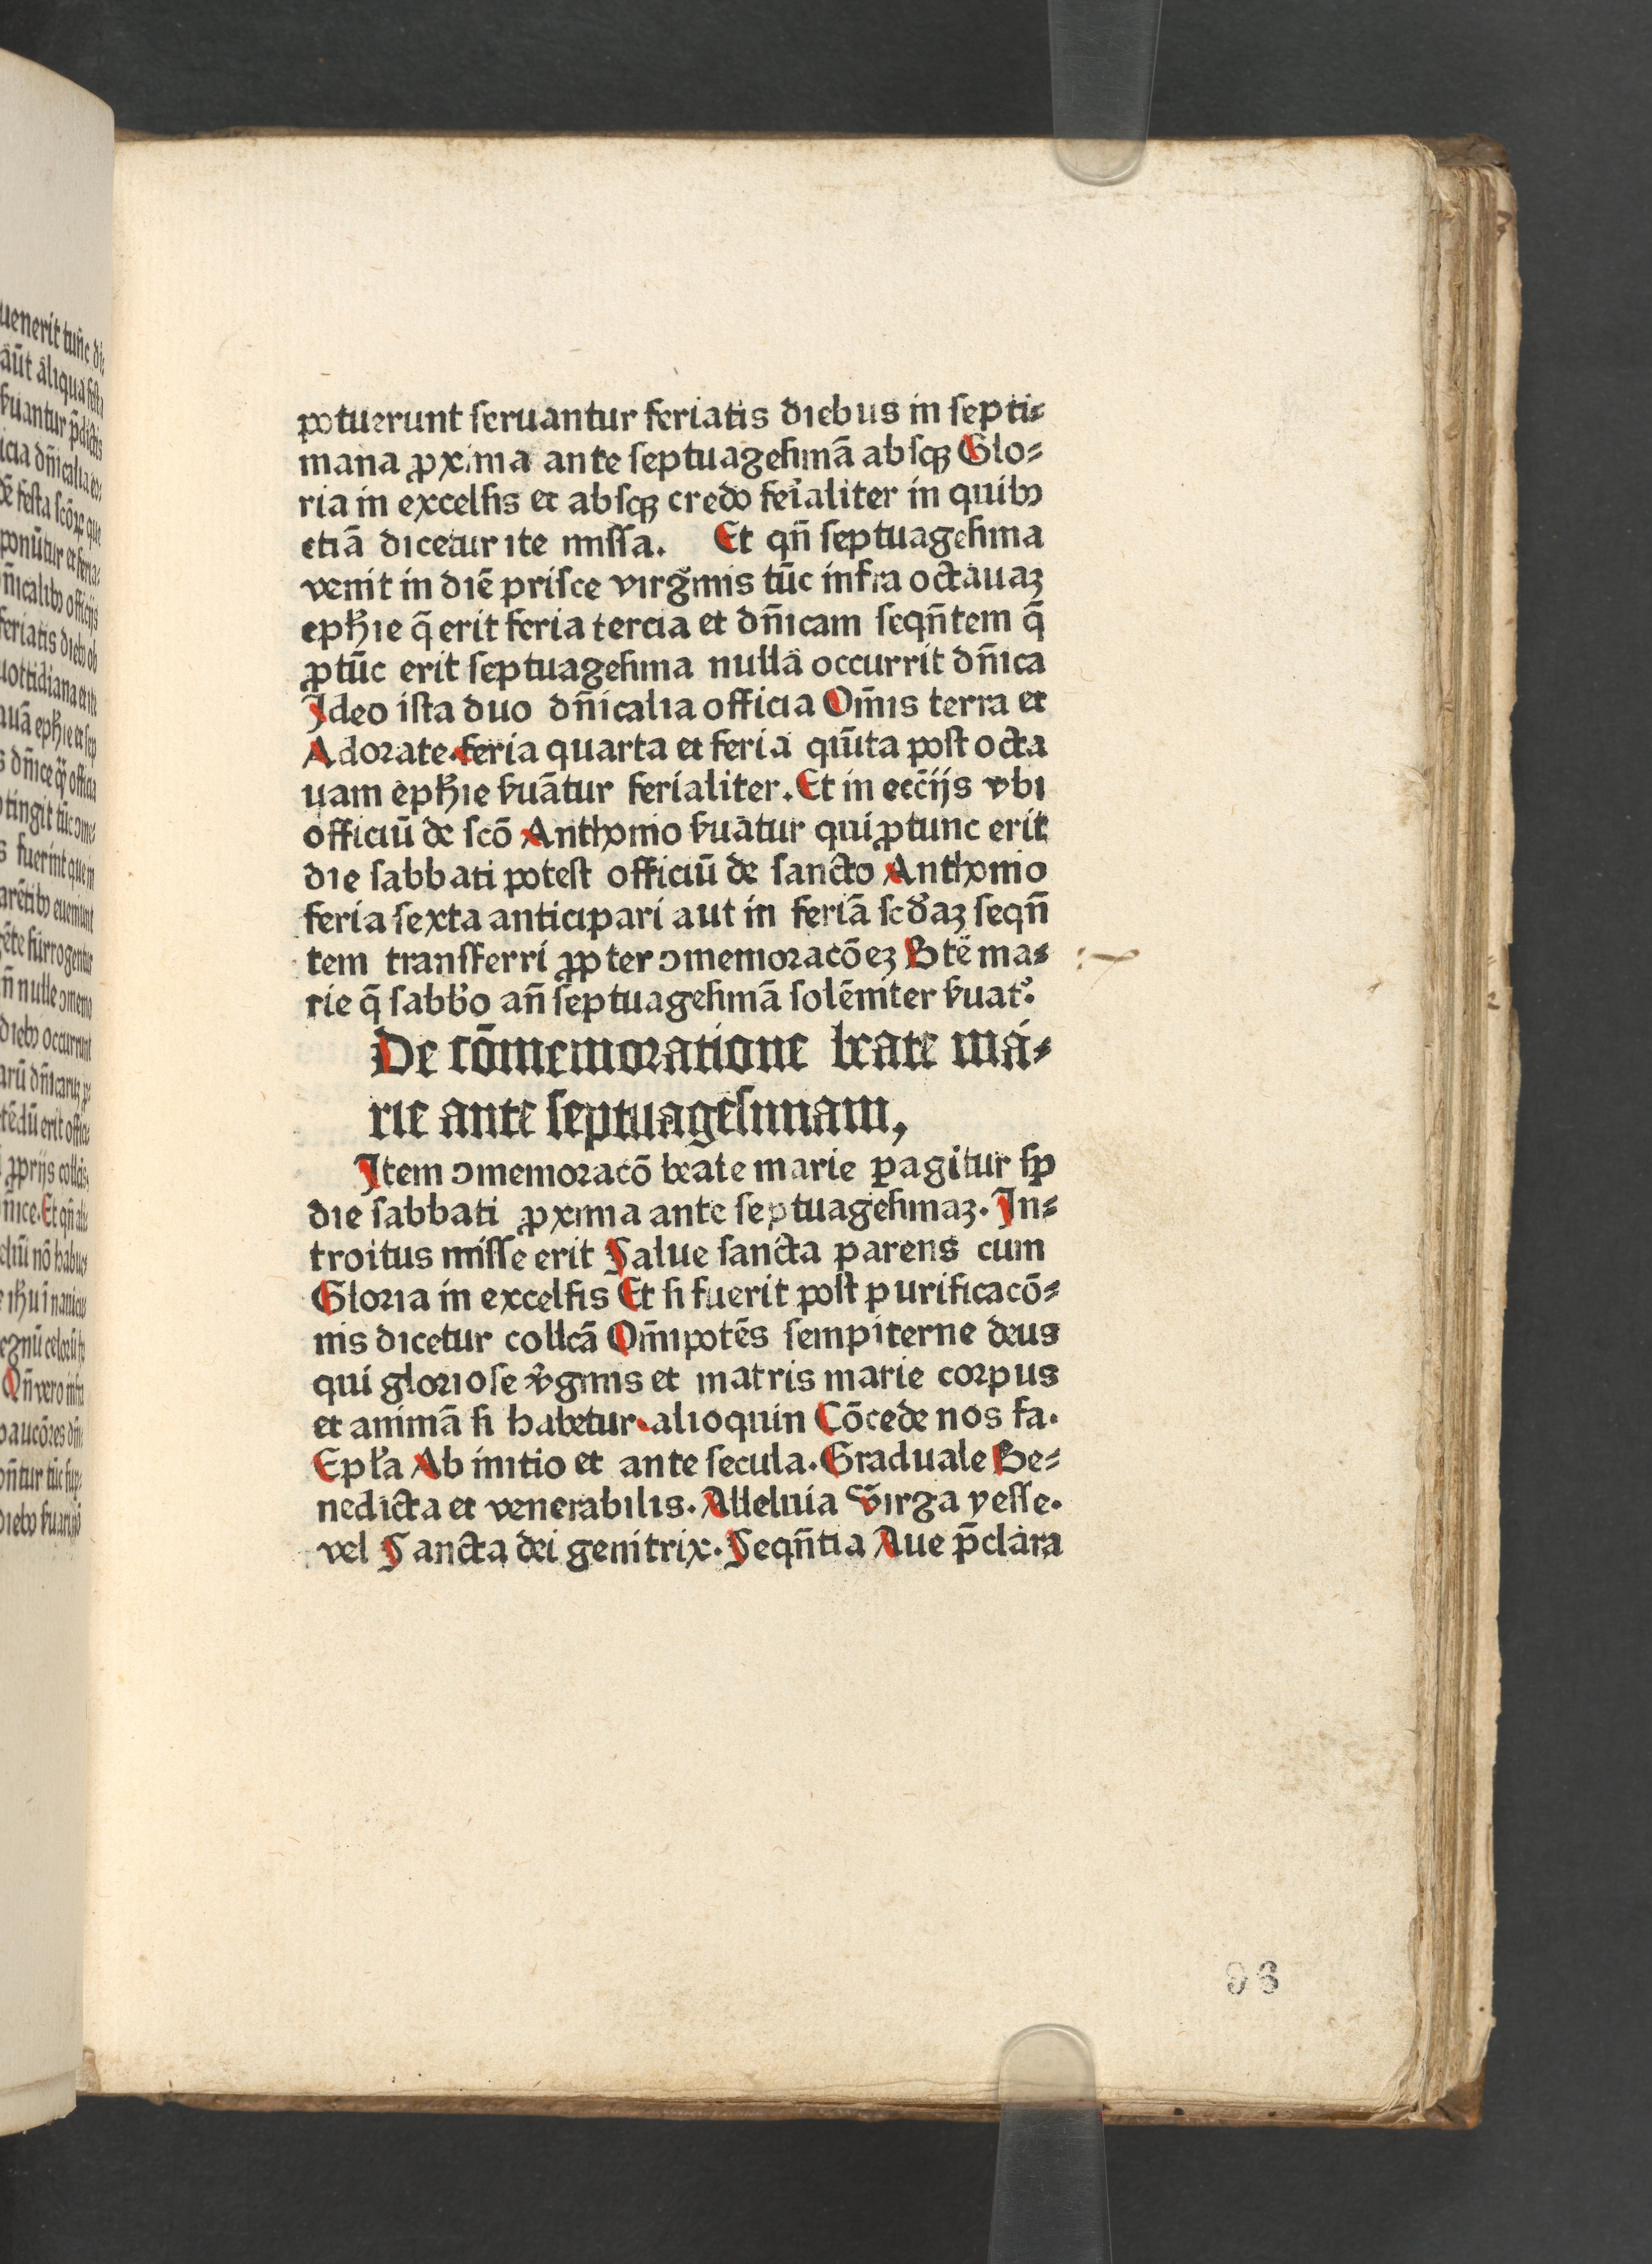 potuerunt seruantur feriatis diebus in septi⸗
mana ꝓxima ante septuagesimā absqꝫ Glo⸗
ria in excelsis et absqꝫ credo feͥaliter in quibꝰ
etiā dicetur ite missa. Et qn̄ septuagesima
venit in diē prisce virgīnis tūc infra octauaꝫ
eph̄ie q̄ erit feria tercia et dn̄icam seqn̄tem q̄
ꝓtūc erit septuagesima nulla occurrit dn̄ica
Ideo ista duo dn̄icalia officia Om̄is terra et
Adorate. feria quarta et feria quīta post octa
uam eph̄ie ẜuātur ferialiter. Et in ecc̄ijs vbi
officiū de scō Anthonio ẜuātur qui ꝓtunc erit
die sabbati potest officiū de sancto Anthonio
feria sexta anticipari aut in feriā scd̄aꝫ seqn̄
tem transferri ꝓpter ↄmemoracōeꝫ Btē ma⸗
rie q̄ sabb̄o an̄ septuagesimā solēniter ẜuatᷣ.
De cōmemoratione beate ma⸗
rie ante septuagesimam,
Item ↄmemoracō beate marie ꝑagitur sꝑ
die sabbati ꝓxima ante septuagesimaꝫ. In⸗
troitus misse erit Salue sancta parens cum
Gloria in excelsis Et si fuerit post purificacō⸗
nis dicetur collcā Om̄ipotēs sempiterne deus
qui gloriose v̄ginis et matris marie corpus
et animā si habetur. alioquin Cōcede nos fa.
Epl̄a Ab initio et ante secula. Graduale Be⸗
nedicta et venerabilis. Alleluia Virga yesse.
vel Sancta dei genitrix. Seqn̄tia Aue p̄clara
96